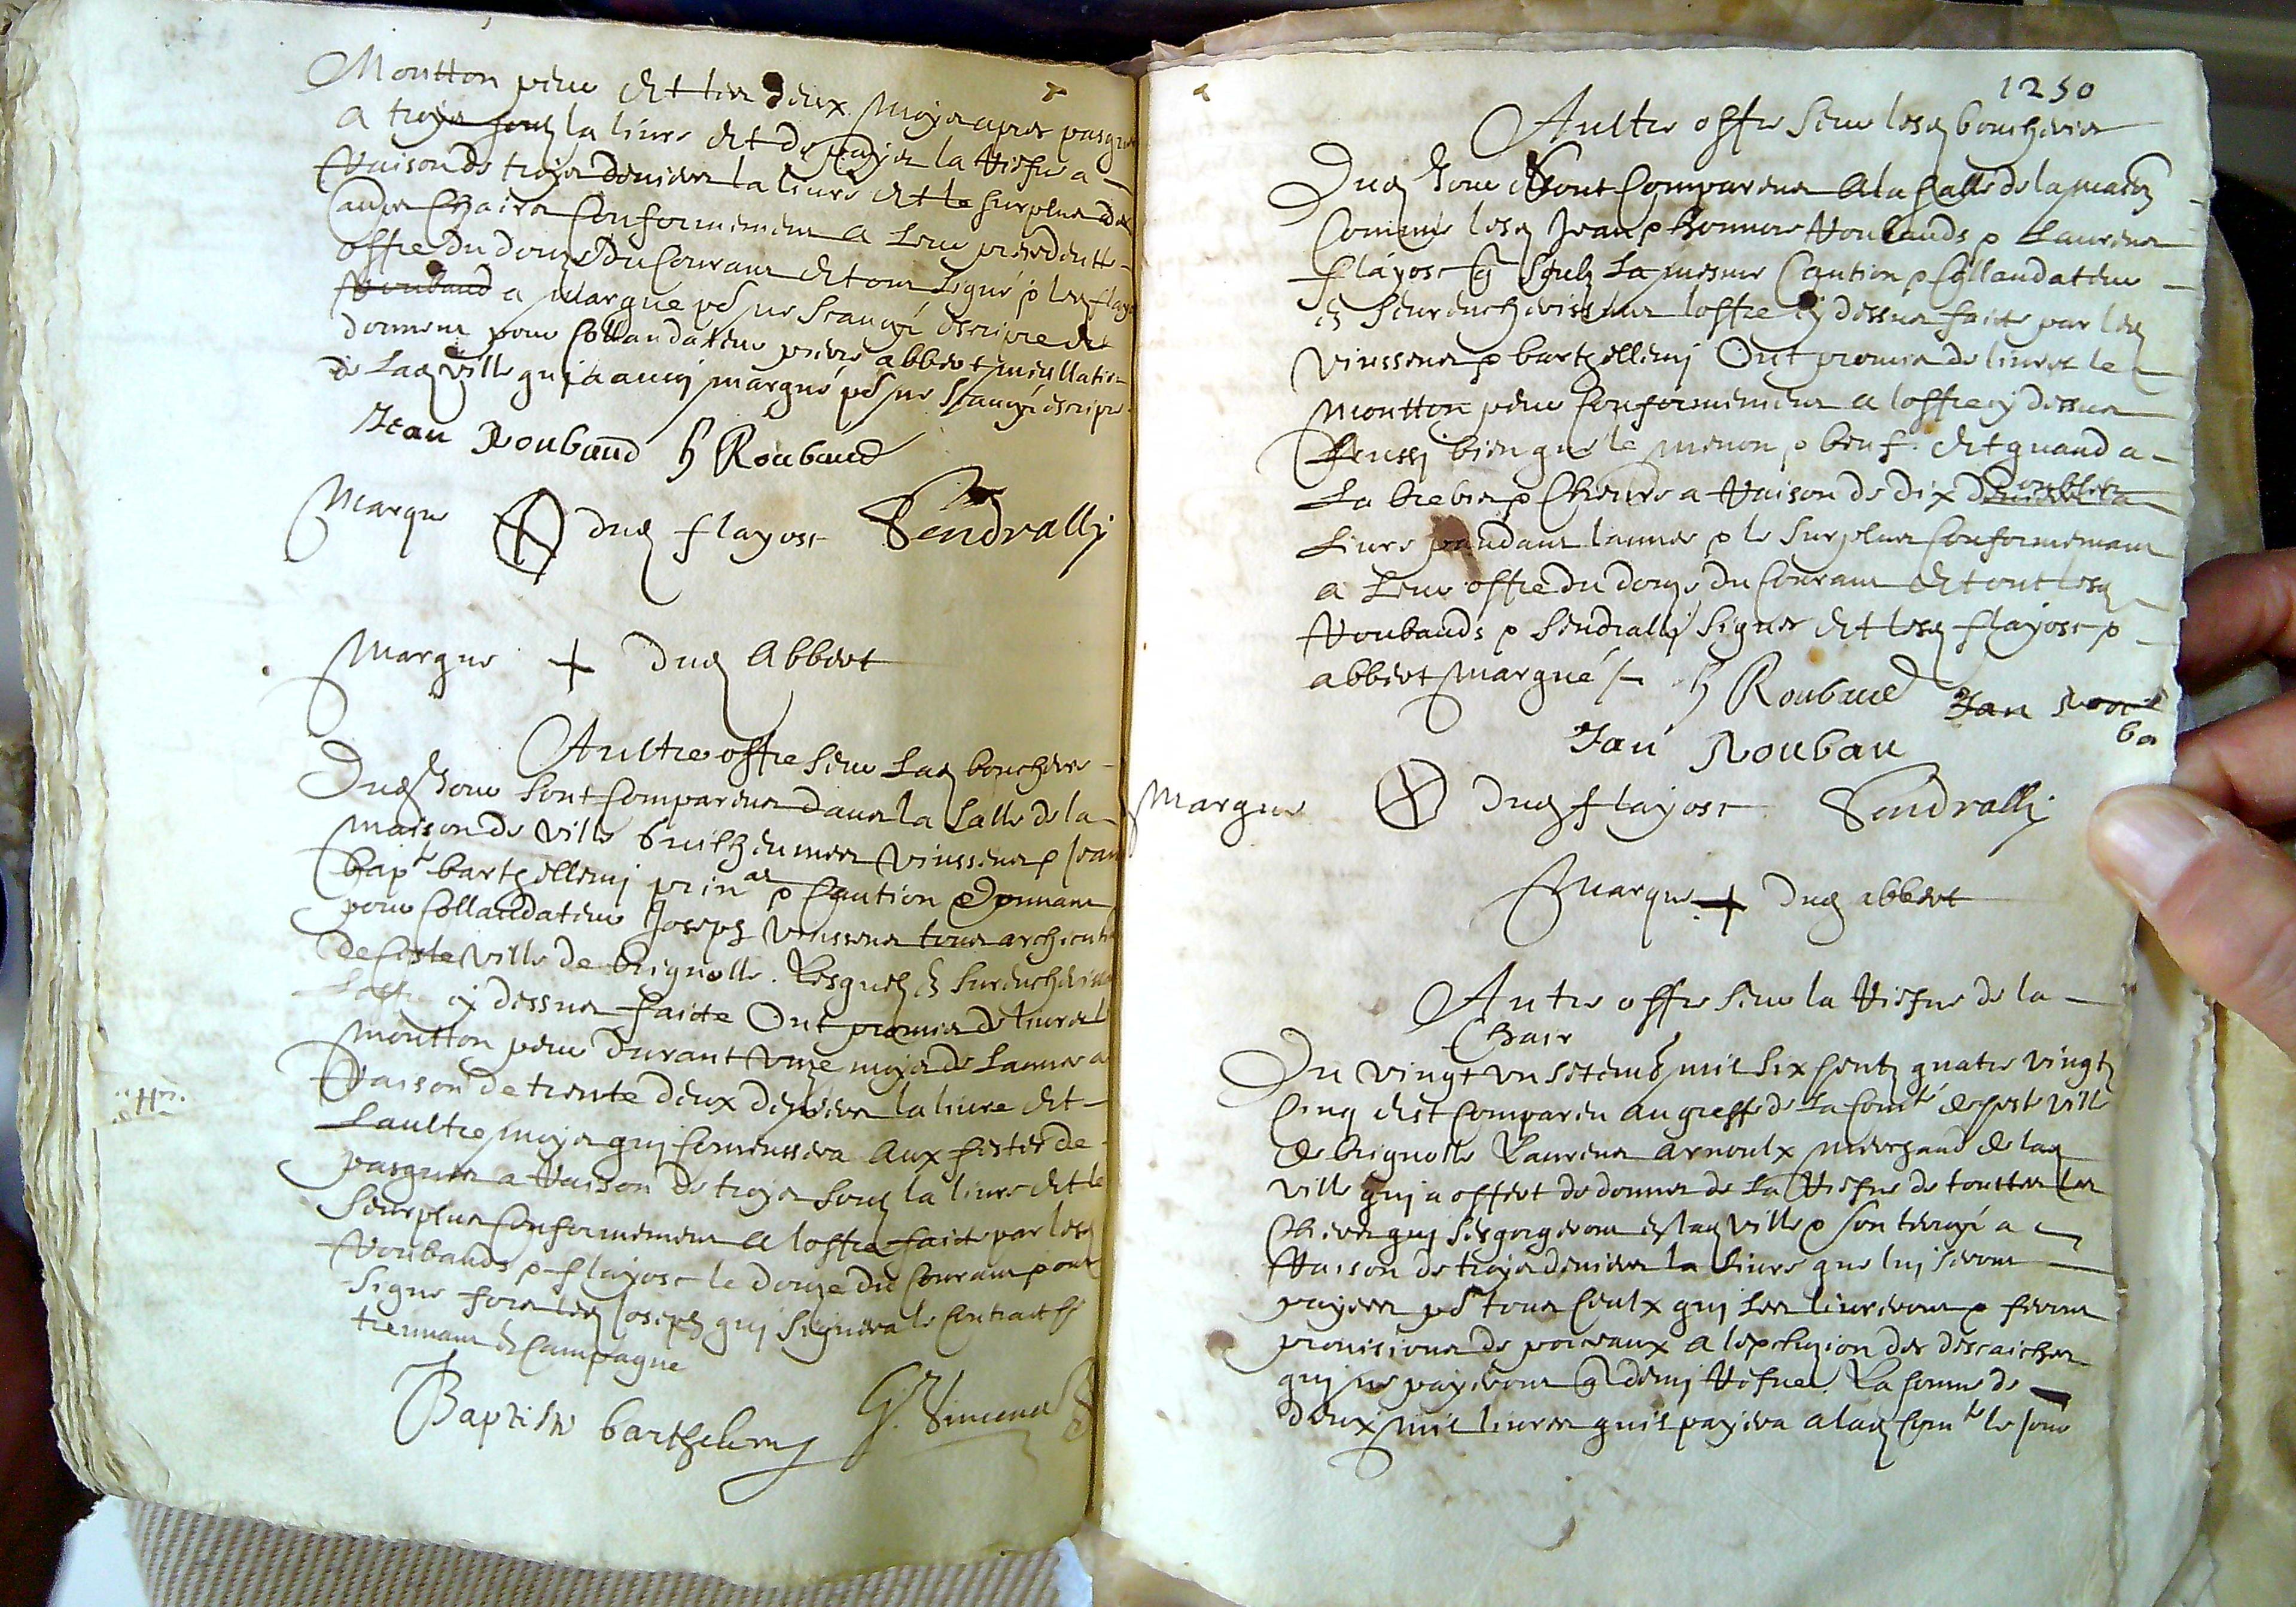 Moutton pour et les deux moys apres pasques
a troys soulz la livre et de payer la rresve a
Raison de troys deniers la livre et le surplus des
aultres Chairs Conformement a leur precedente
offre du douze du Courant et ont signé p led flayosc
Roubaud a marque po ne scavoir escripre et
donnent pour Collaudateur pierre abbert
de lad ville quj a aucy marqué po ne scavoir escripre
Jean Roubaud h Roubaud
Marque dud flayosc Sendrallj
Marque + dud Abbert
Aultre offre sur lad boucherie
Dud Jour sont Compareus dans la salle de la
maison de ville Vinssens p Jean
bapte barthellemj prinal p Caution donnant
pour Collaudateur Joseph Vinssens tous
de ceste ville de brignolle. Lesquelz en surencherissant
Loffre cy dessus faicte Ont promis de livrer le
moutton pour durant unze moys de Lannee a
Raison de trente deux deniers la livre et
Laultre moys quj Comenssera aux festes de
pasques a Raison de troys soulz la livre et le
surplus Conformement a loffre faicte par lesd
Roubauds p flayosc le douze du Courant p ont
signé fors led Joseph quj signera le Contract
en Campagne
Baptiste barthelemy G. Vincens
1250
Aultre offre sur lesd boucheries
Dud Jour sont Comparens a la salle de la maison
Commune lesd Jean p honnore Roubauds p Laurens
flayosc soubz La mesme Caution p Collaudateur
en surencherissant loffre cy dessus faicte par led
Vinssens p barthellemj Ont promis de livrer le
moutton pour Conformement a loffre cy dessus
aussj bien que le menon p beuf. et quand a
La brebis p Chevre a Raison de dix doubles la
Livre pandant lannee p le surplus Conformement
a Leur offre du douze du Courant et ont lesd
Roubauds p Sendrallj signes et lesd flayosc p
abbert marqué h Roubaud Jan Rou
ba
Jan Roubau
Marque dud flayosc Sendrallj
Marque + dud abbert
Autre offre sur la Rresve de la
Chair
Du vingt un settemb mil six centz quatre vingtz
Cinq est Compareu au greffe de La Comté de ceste ville
de brignolle Laurens arnoulx marchand de lad
ville quj a offert de donner de La Rresve de touttes les
Chairs quj sesgorgeront en lad ville p son terroir a
Raison de troys deniers la livre que luj seront
payees po tous ceulx quj Les livreront p feront
provisions de porceaux a lexception des
quj ne payeront q demj Resve. La somme de
deux mil livres quil payera a lad Comté le jour